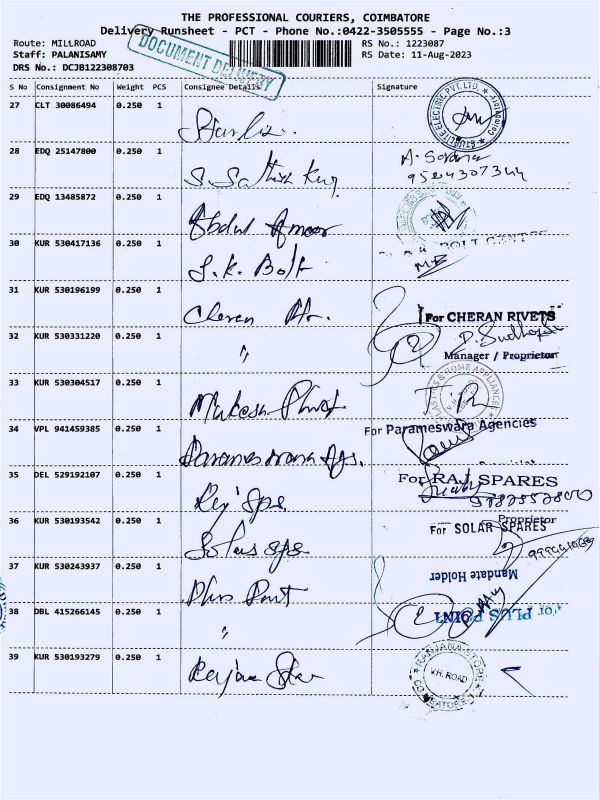 THE PROFESSIONAL COURIERS, COIMBATORE
Delivery Runsheet - PCT - Phone No.:0422-3505555 - Page No.:3
Route: MILLROAD RS No.: 1223087
Staff: PALANISAMY RS Date: 11-Aug-2023
DRS No.: DCJB122308703
DOCUMENT DELIVERY
S No Consignment No Weight PCS Consignee Details Signature
27 CLT 30086494 0.250 1
28 EDQ 25147800 0.250 1 S. Sathish Kug
9524307344
29 EDQ 13485872 0.250 1 Abdul
30 KUR 530417136 0.250 1 S.K. Bolt
BOLT CENTRE
31 KUR 530196199 0.250 1 Cheran
For CHERAN RIVETS
32 KUR 530331220 0.250 1 "
Manager / Proprietor
33 KUR 530304517 0.250 1 Mukesh
& HOME APPLIANCES
34 VPL 941459385 0.250 1 Parameswara Ags.
For Parameswara Agencies
35 DEL 529192107 0.250 1 Raj Sps.
For RAJ SPARES
Proprietor
36 KUR 530193542 0.250 1 Solar Sps
For SOLAR SPARES
37 KUR 530243937 0.250 1 Plus Point
Mandate Holder
38 DBL 415266145 0.250 1 "
For PLUS POINT
39 KUR 530193279 0.250 1 Star
RANJANA STORE
V.H. ROAD
COIMBATORE